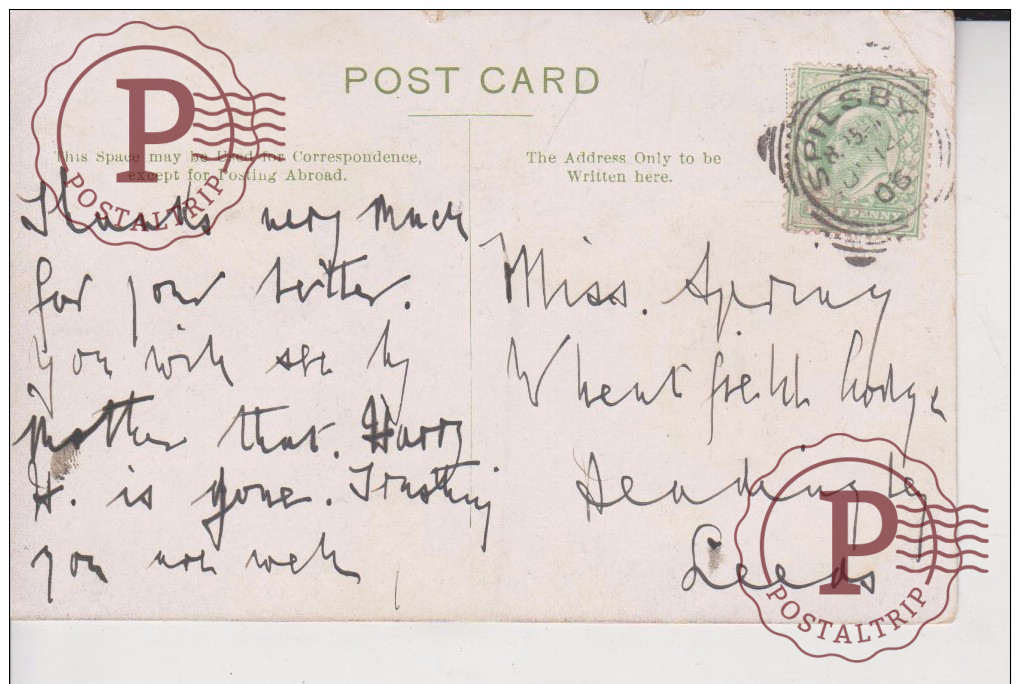 POST CARD
This Space may be Used for Correspondence,
except for Posting Abroad.
The Address Only to be
Written here.
SPILSBY
08
PENNY
Thanks very much
for your letter.
you will see by
Mother that. Harry
H. is gone. Trusting
you are well
Miss. Spring
Wheatfield Lodge
Headingley
Leeds
P
POSTALTRIP
P
POSTALTRIP